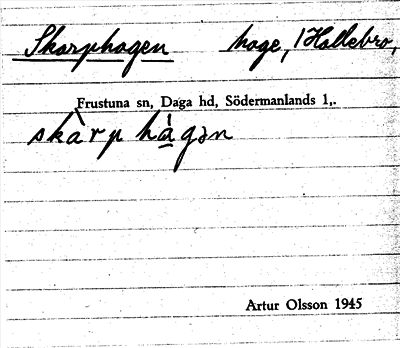 Skarphagen hage, Hallebro,
Frustuna sn, Daga hd, Södermanlands l,.
skàrp hágən
Artur Olsson 1945